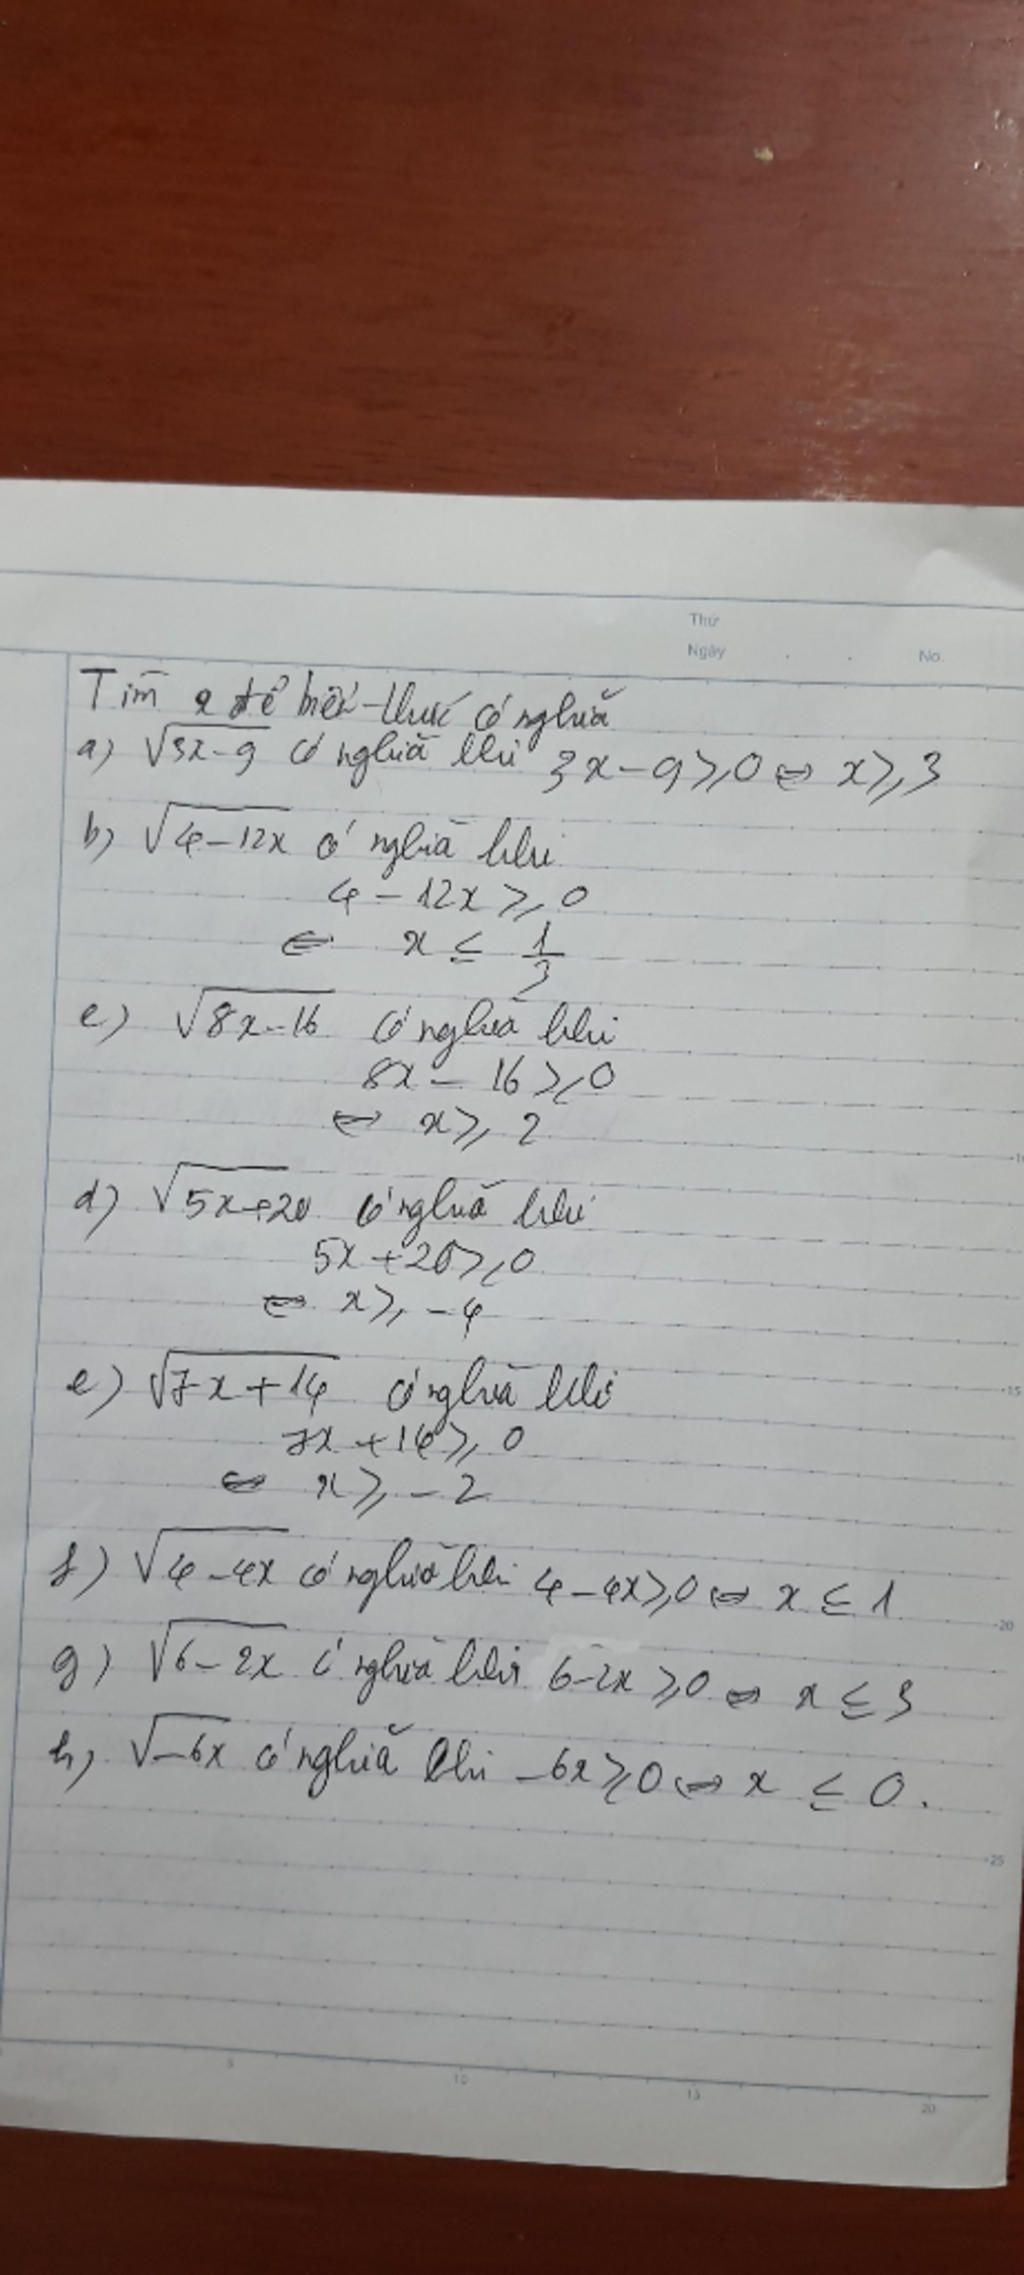 Thứ
Ngày . . No.
Tìm x để biểu thức có nghĩa
a) √3x-9 có nghĩa khi 3x-9≥0 ⇔ x≥3
b) √4-12x có nghĩa khi
4-12x≥0
⇔ x ≤ 1/3
c) √8x-16 có nghĩa khi
8x-16≥0
⇔ x≥2
d) √5x+20 có nghĩa khi
5x+20≥0
⇔ x≥-4
e) √7x+14 có nghĩa khi
7x+14≥0
⇔ x≥-2
f) √4-4x có nghĩa khi 4-4x≥0 ⇔ x ≤ 1
g) √6-2x có nghĩa khi 6-2x≥0 ⇔ x ≤ 3
h) √-6x có nghĩa khi -6x≥0 ⇔ x ≤ 0.
15
20
25
5 10 15 20